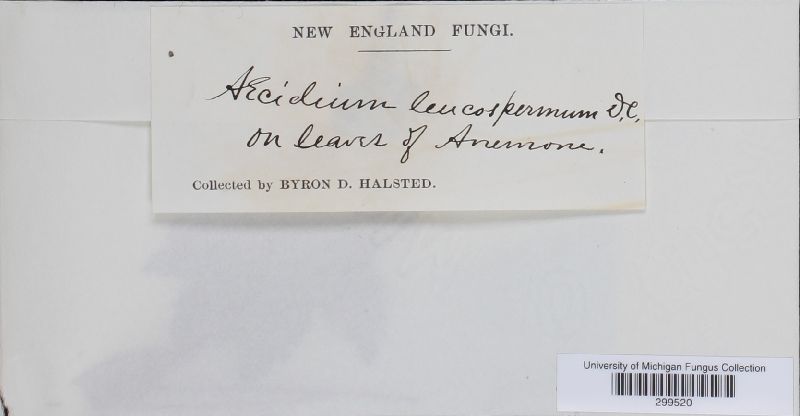 NEW ENGLAND FUNGI.
Æcidium leucospermum D.C.
on leaves of Anemone.
Collected by BYRON D. HALSTED.
University of Michigan Fungus Collection
299520